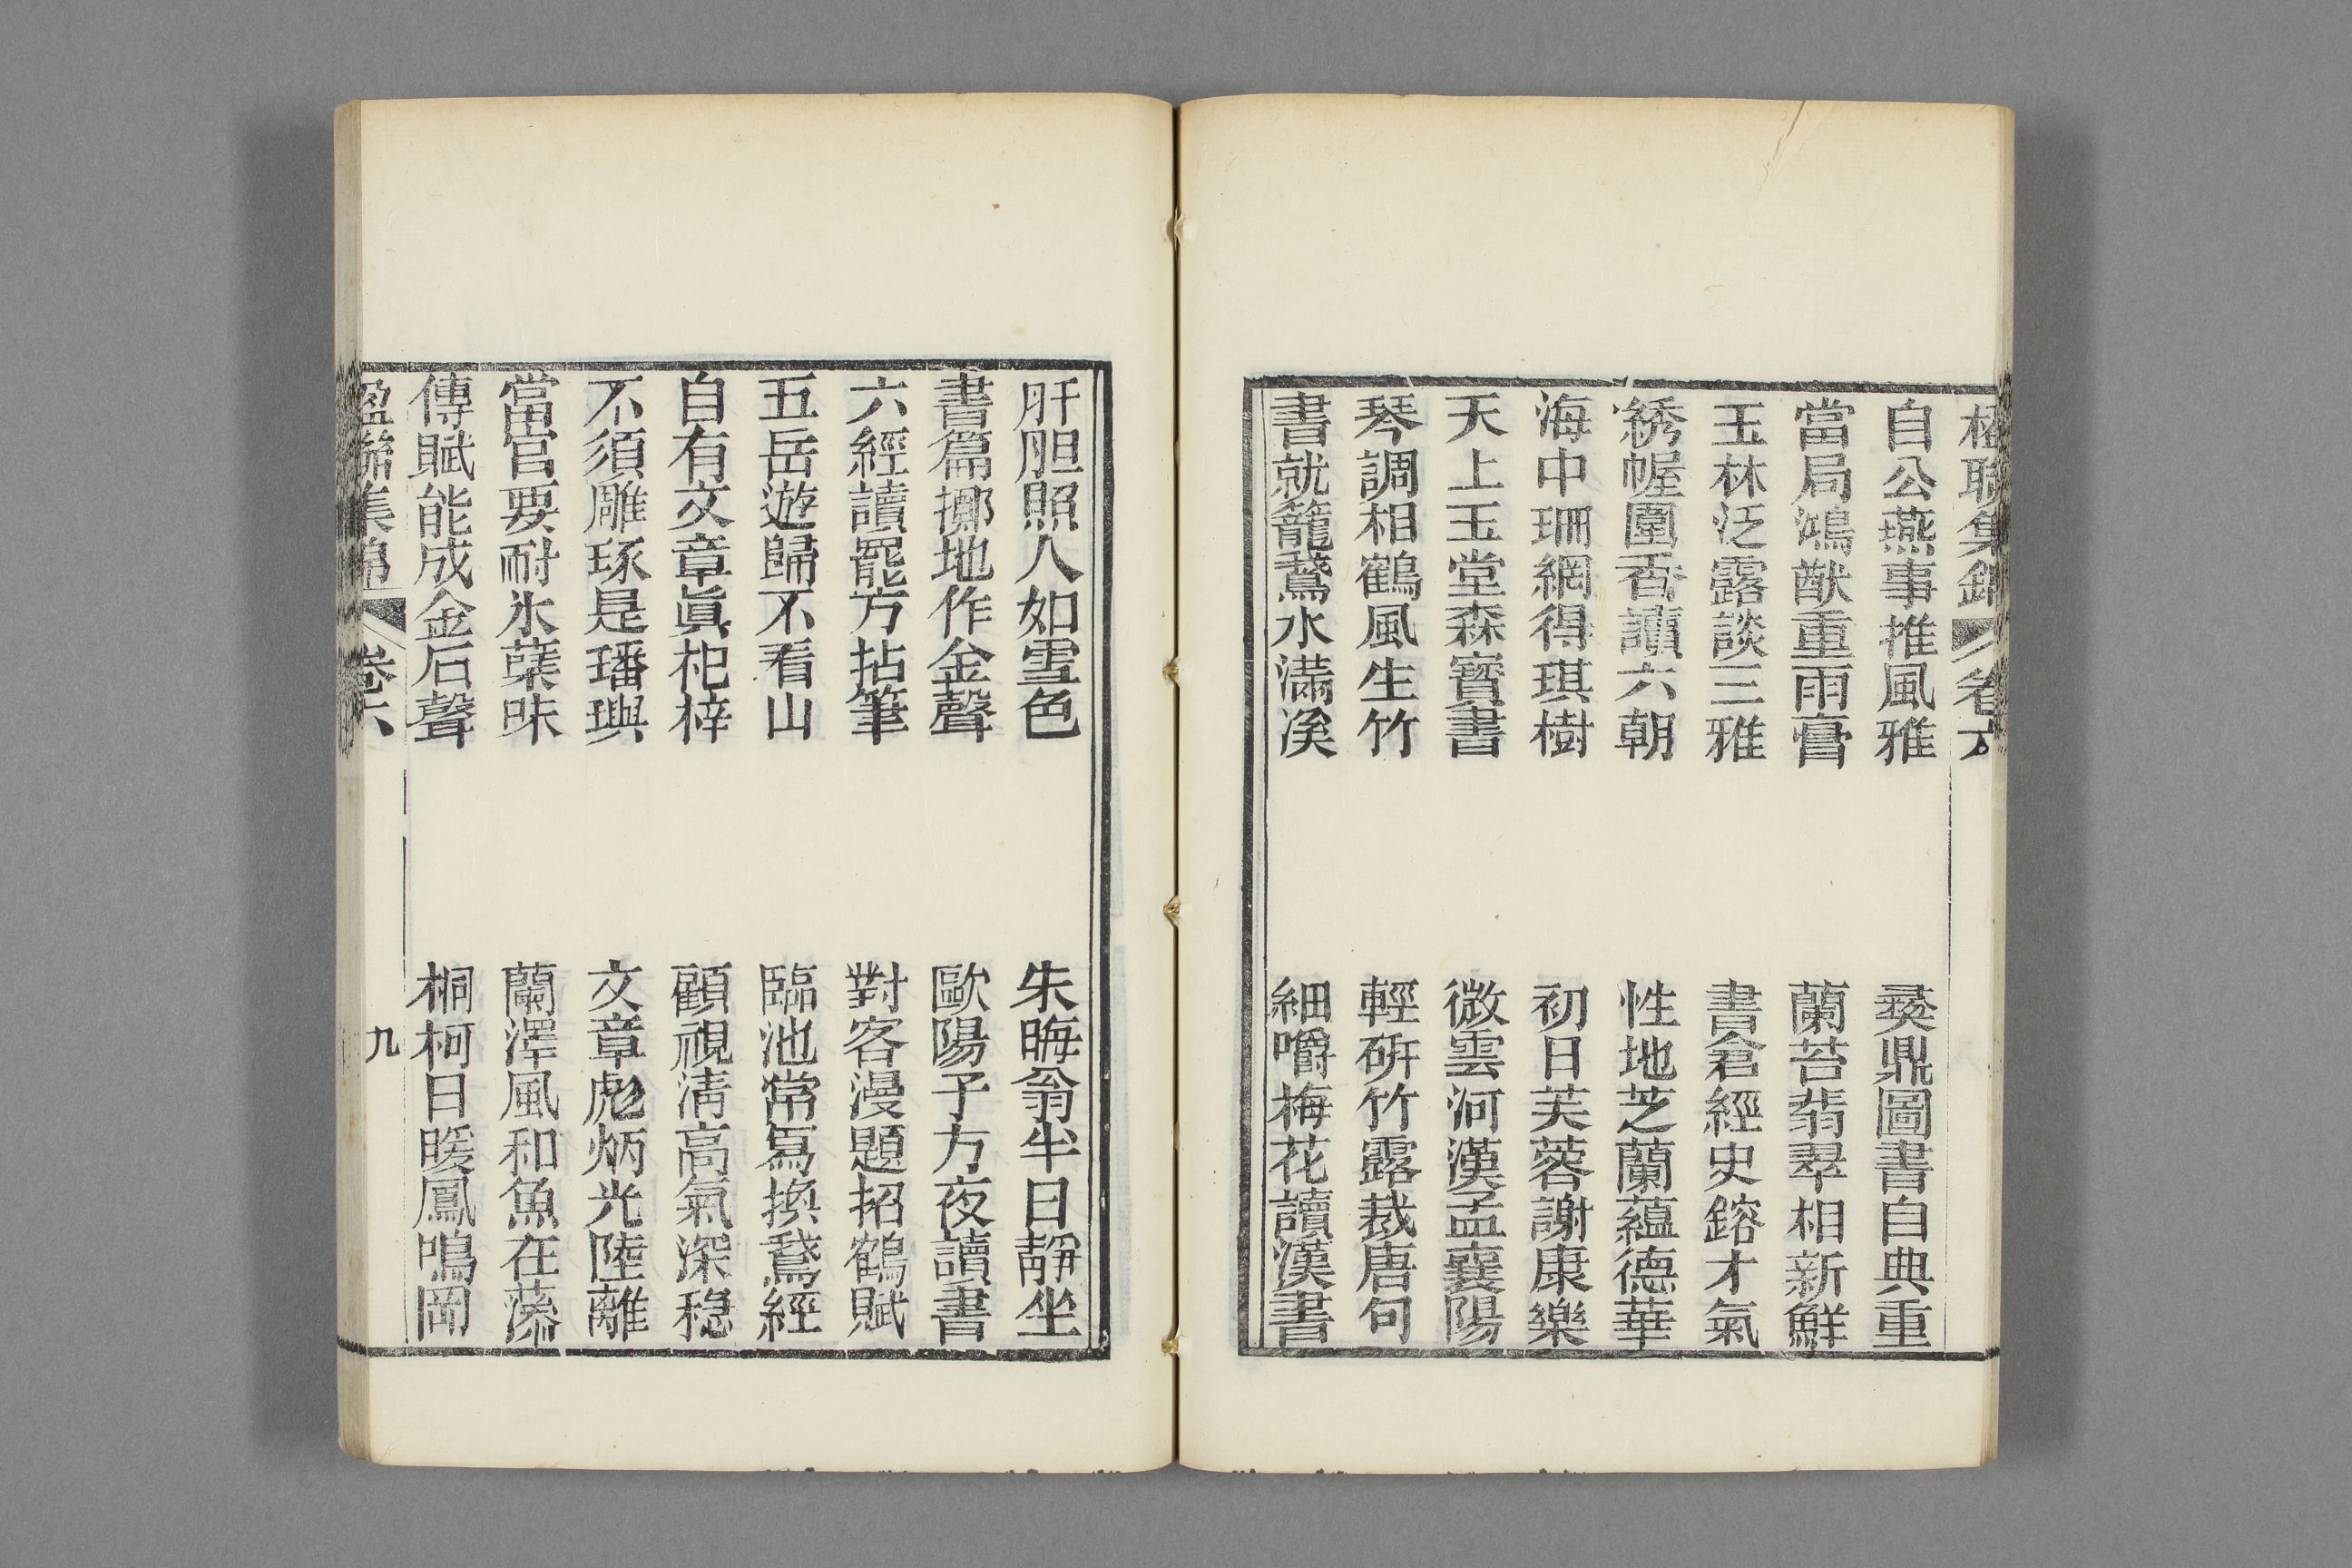 楹聯集錦 卷六
自公燕事推風雅 彝鼎圖書自典重
當局鴻猷重雨膏 蘭苕翡翠相新鮮
玉林泛露談三雅 書倉經史鎔才氣
綉幄圍香讀六朝 性地芝蘭蘊德華
海中珊網得琪樹 初日芙蓉謝康樂
天上玉堂森寶書 微雲河漢孟襄陽
琴調相鶴風生竹 輕硏竹露裁唐句
書就籠鵞水滿溪 細嚼梅花讀漢書
肝胆照人如雪色 朱晦翁半日靜坐
書篇擲地作金聲 歐陽子方夜讀書
六經讀罷方拈筆 對客漫題招鶴賦
五岳遊歸不看山 臨池常寫換鵞經
自有文章眞杞梓 顧視淸高氣深穏
不須雕琢是璠璵 文章彪炳光陸離
當官要耐氷蘖味 蘭澤風和魚在藻
傳賦能成金石聲 桐柯日暖鳳鳴岡
楹聯集錦 卷六 九